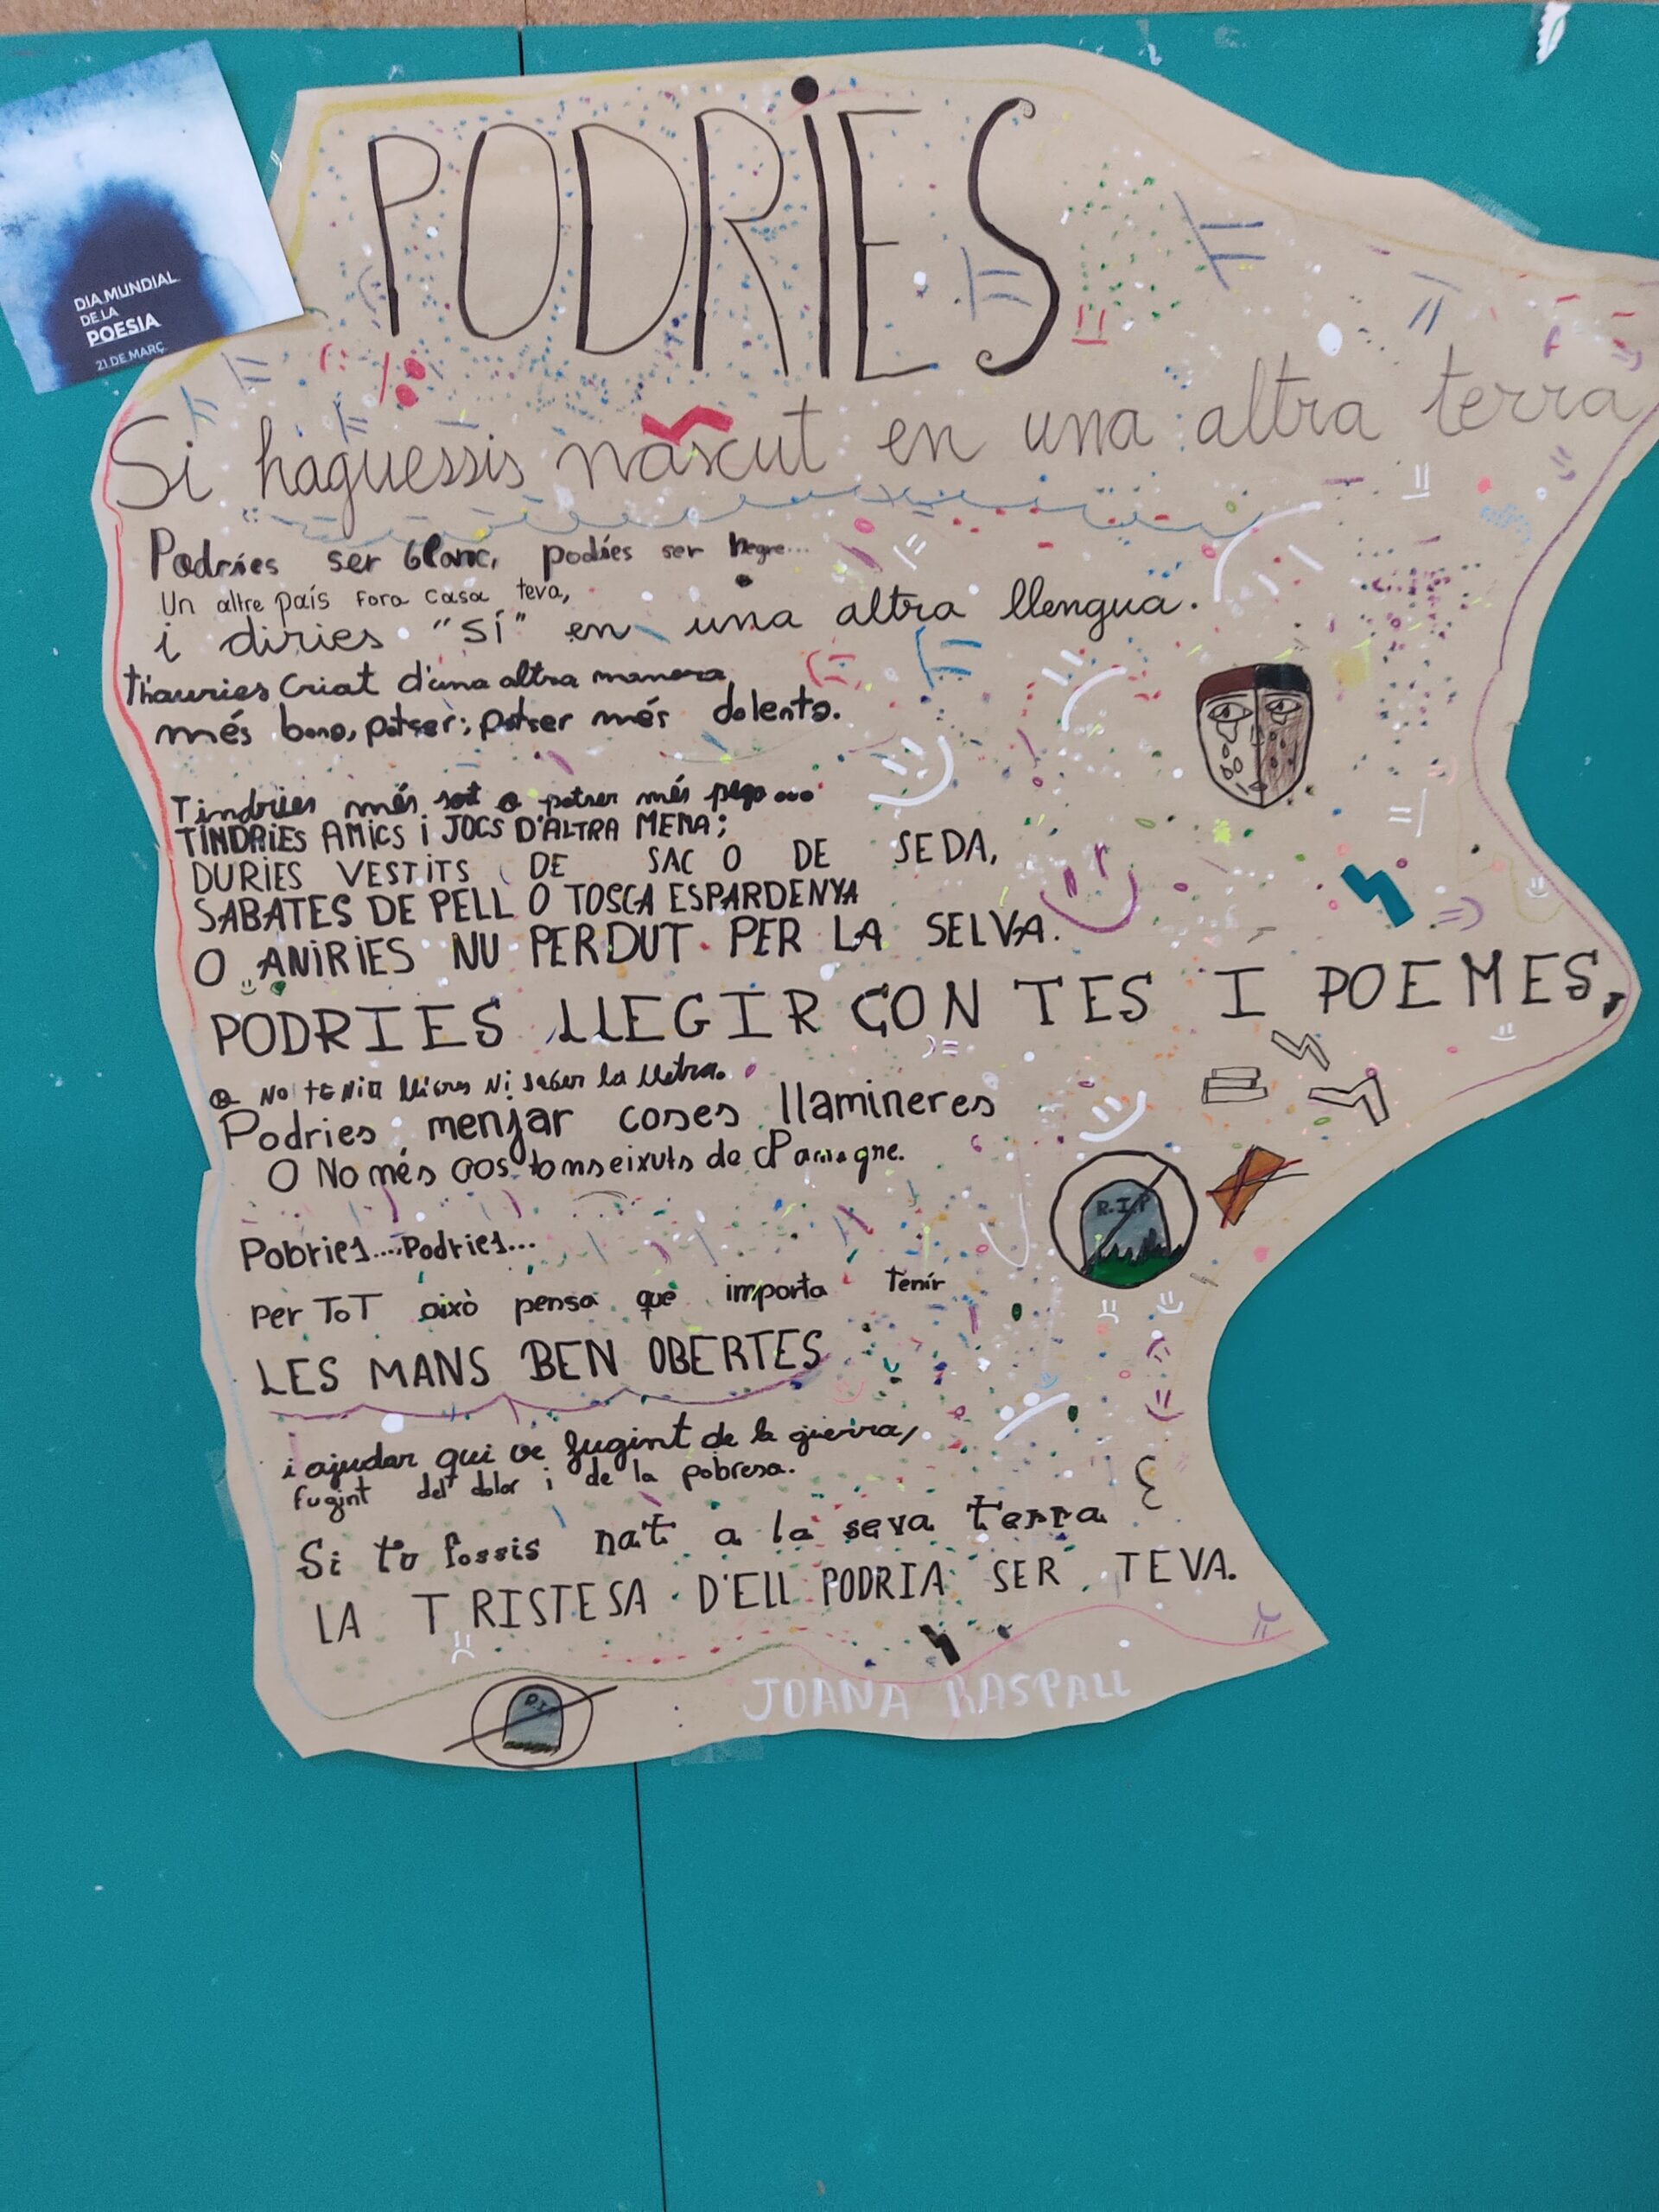 DIA MUNDIAL
DE LA
POESIA
21 DE MARÇ
PODRiES
Si haguessis nascut en una altra terra
Podries ser blanc, podies ser negre...
Un altre país fora casa teva,
i diries "SÍ" en una altra llengua.
t'hauries criat d'una altra manera,
més bona, potser; potser més dolenta.
Tindries més sort o potser més pega...
TINDRIES AMICS i JOCS D'ALTRA MENA;
DURIES VESTITS DE SAC O DE SEDA,
SABATES DE PELL O TOSCA ESPARDENYA
O ANIRIES NU PERDUT PER LA SELVA.
PODRIES LLEGIR CONTES I POEMES,
O NO tENiR llibres Ni saber la lletra.
Podries menjar coses llamineres
O Només seixuts de
Pobries....Podries...
per ToT això pensa què importa tenir
LES MANS BEN OBERTES
i ajudar qui ve fugint de la guerra,
fugint del dolor i de la pobresa.
Si tu fossis nat a la seva terra
LA TRISTESA D'ELL PODRIA SER TEVA.
JOANA RASPALL
R.I.P